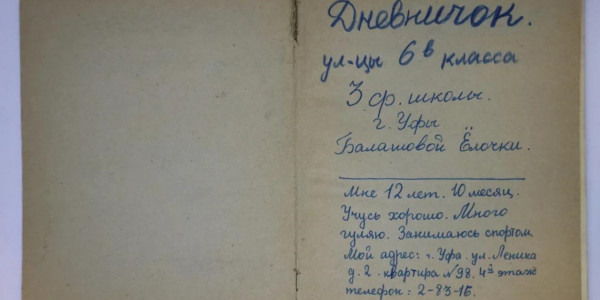 Дневничок.
ул-цы 6 в класса
3 ф. школы.
г. Уфы
Балашовой Ёлочки.
Мне 12 лет. 10 месяц.
Учусь хорошо. Много
гуляю. Занимаюсь спортом
Мой адрес: г. Уфа. ул. Ленина
д. 2. квартира №98. 4й этаж
телефон: 2-83-16.